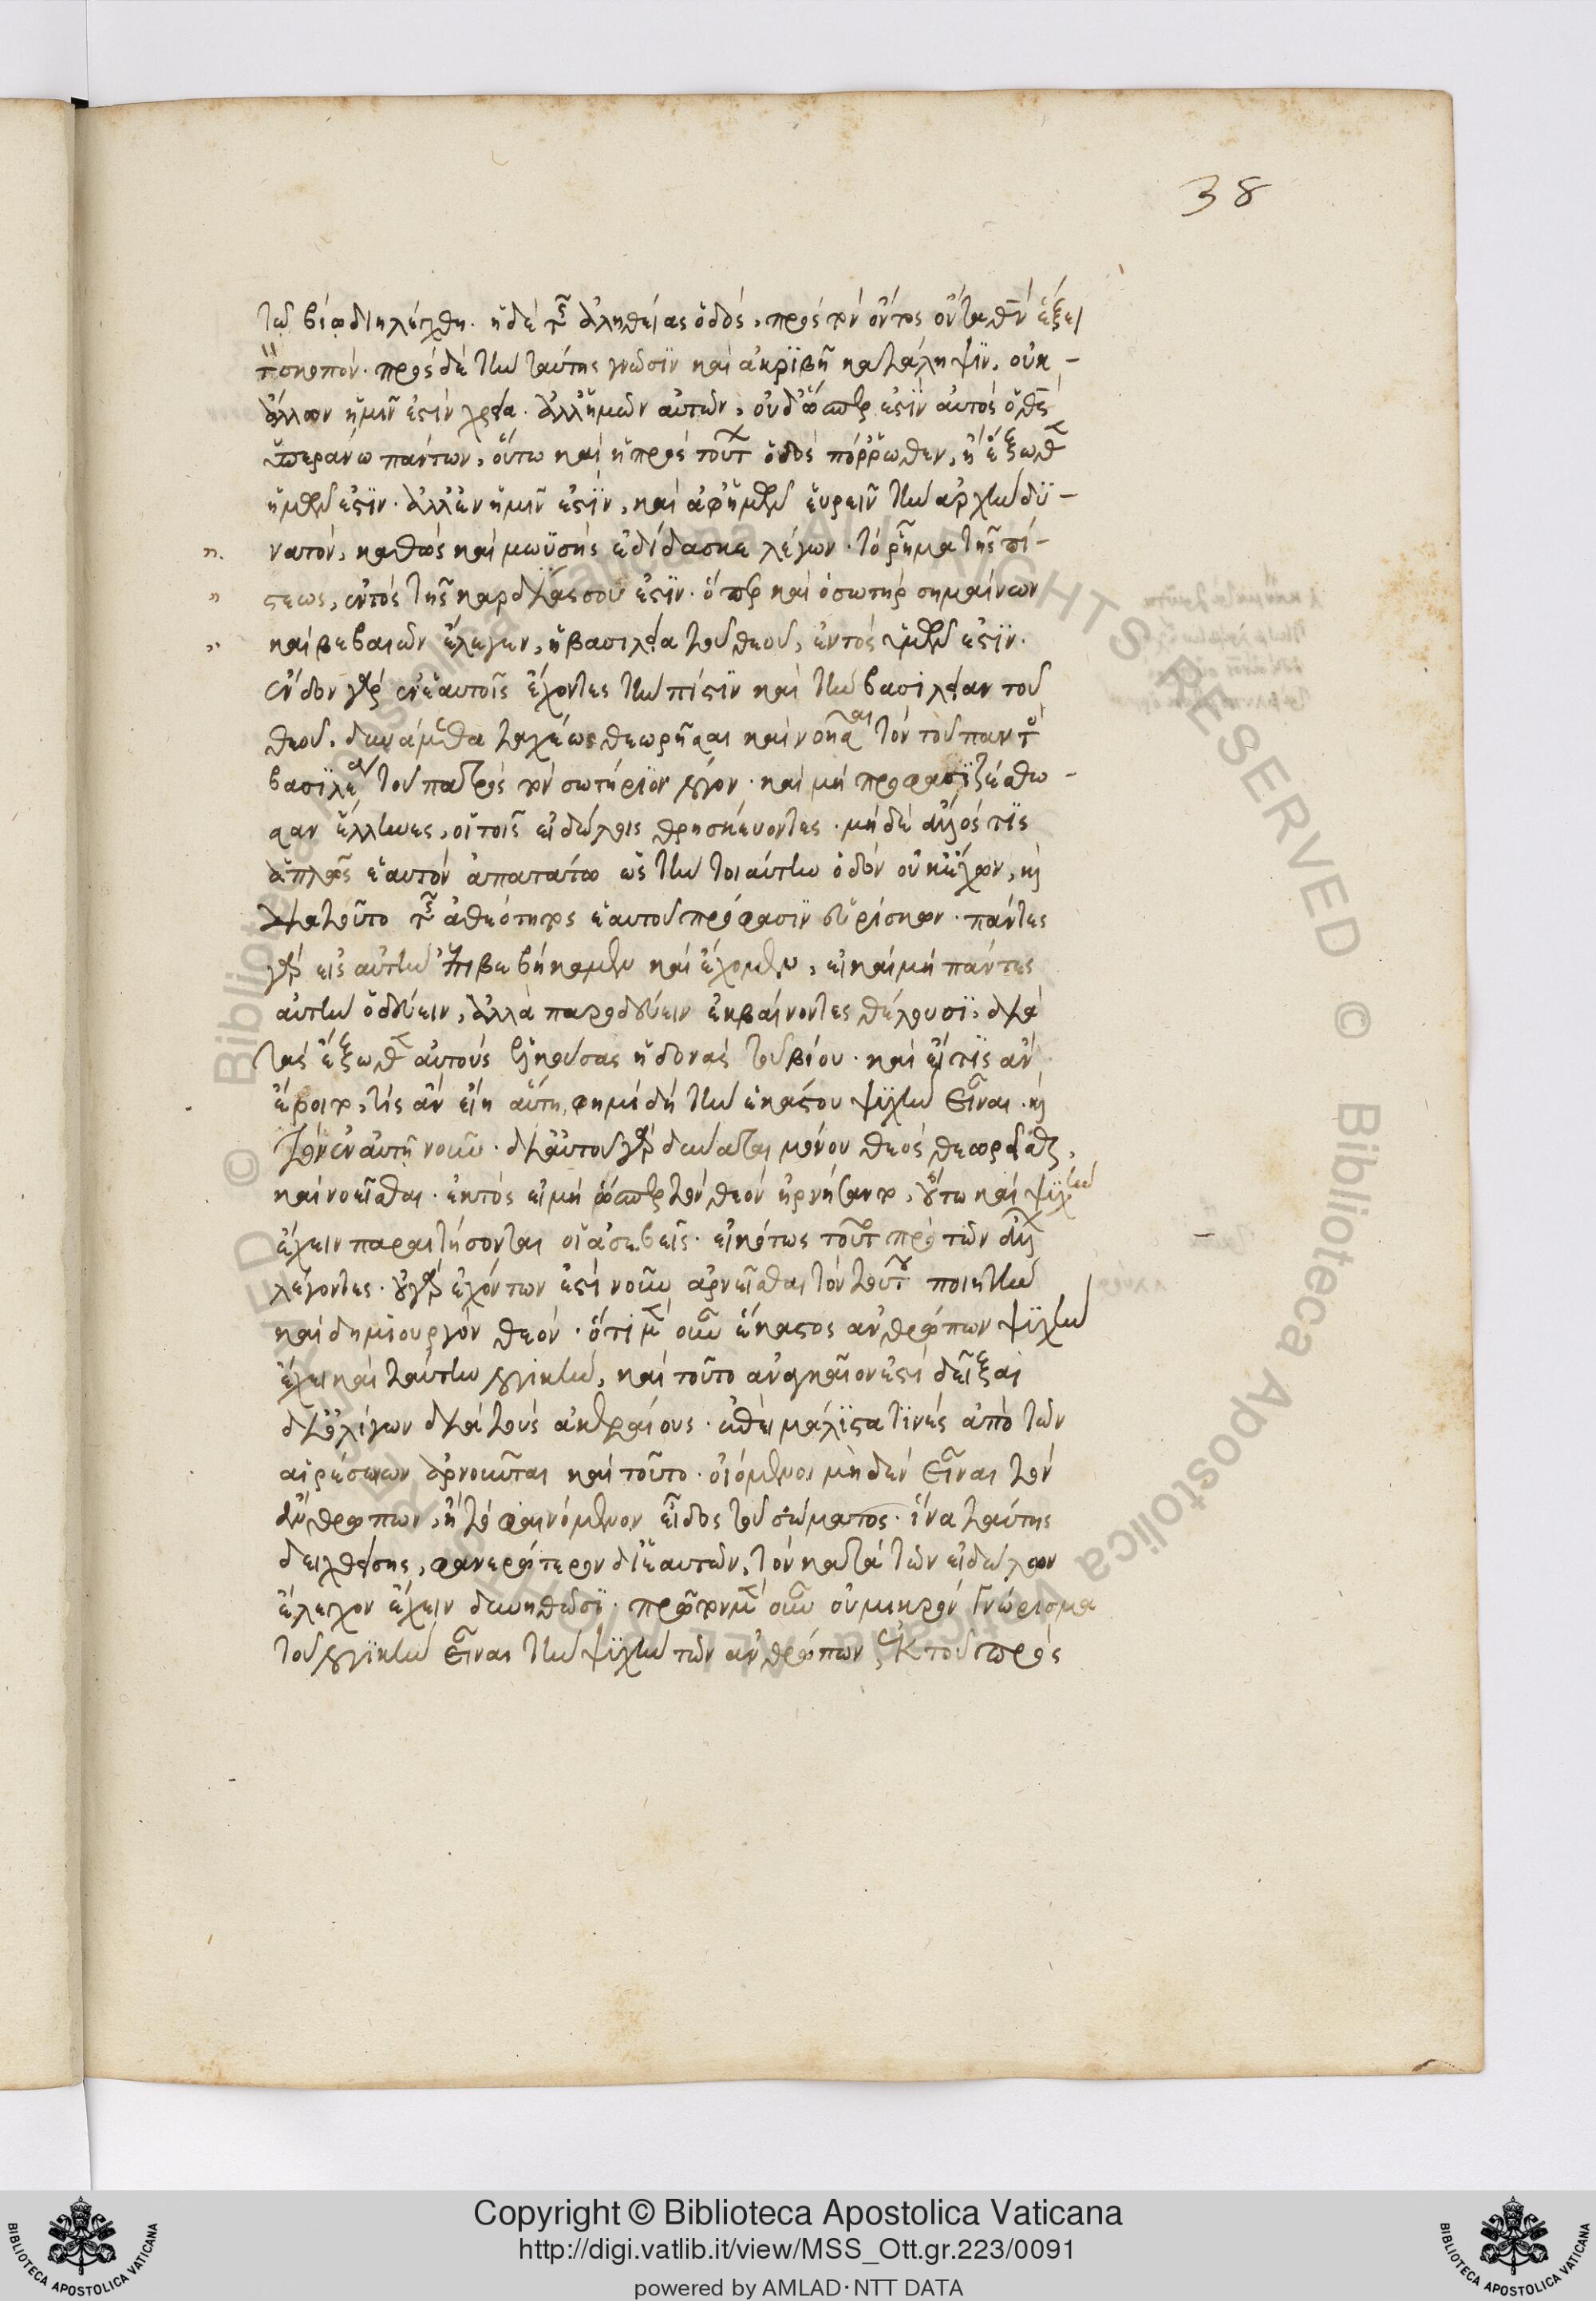 38
τῷ βίῳ διηλέγχθη. ἡ δὲ τῆς ἀληθείας ὁδὸς, πρὸς τὸν ὄντως ὄντα θεὸν ἕξει
τὸν σκοπόν. πρὸς δὲ τὴν ταύτης γνῶσϊν καὶ ἀκρϊβῆ κατάληψϊν, οὐκ -
ἄλλων ἡμῖν ἐστὶν χρεία. ἀλλ' ἡμῶν αὐτῶν, οὐδ' ὥσπερ ἐστϊν αὐτὸς ὁ θεὸς
ὑπεράνω πάντων, οὕτω καὶ ἡ πρὸς τοῦτον ὁδὸς πόρρωθεν, ἢ ἔξωθεν
ἡμῶν ἐστϊν. ἀλλ' ἐν ἡμῖν ἐστϊν, καὶ ἀφ' ἡμῶν εὑρεῖν τὴν ἀρχὴν δϋ -
νατὸν, καθὼς καὶ μωϋσῆς ἐδίδασκε λέγων. τὸ ῥῆμα τῆς πί -
στεως, ἐντὸς τῆς καρδίας σου ἐστϊν. ὅπερ καὶ ὁ σωτὴρ σημαίνων
καὶ βεβαιῶν ἔλεγεν, ἡ βασιλεία τοῦ θεοῦ, ἐντὸς ὑμῶν ἐστϊν.
ἔνδον γὰρ ἐν ἑαυτοῖς ἔχοντες τὴν πίστϊν καὶ τὴν βασιλείαν τοῦ
θεοῦ, δυνάμεθα ταχέως θεωρῆσαι καὶ νοῆσαι τὸν τοῦ παντὸς
βασϊλέα, τοῦ πατρὸς τὸν σωτήρϊον λόγον. καὶ μὴ προφασϊζέσθω -
σαν ἕλληνες, οἱ τοῖς εἰδώλοις θρησκεύοντες. μὴ δὲ ἄλλός τϊς
ἁπλῶς ἑαυτὸν ἀπατάτω ὡς τὴν τοιαύτην ὁδὸν οὐκ ἔχων, καὶ
διὰ τοῦτο τῆς ἀθεότητος ἑαυτοῦ πρόφασϊν εὑρίσκων. πάντες
γὰρ εἰς αὐτὴν ἐπιβεβήκαμεν καὶ ἔχομεν, εἰ καὶ μὴ πάντες
αὐτὴν ὁδεύειν, ἀλλὰ παροδεύειν ἐκβαίνοντες θέλουσϊ, διὰ
τὰς ἔξωθεν αὐτοὺς ἑλκούσας ἡδονὰς τοῦ βίου. καὶ εἴ τϊς ἂν
ἔροιτο, τίς ἂν εἴη αὕτη, φημὶ δὴ τὴν ἑκάστου ψϋχὴν εἶναι, καὶ
τὸν ἐν αὐτῇ νοῦν. δι' αὐτοῦ γὰρ δύναται μόνου θεὸς θεωρεῖσθαι,
καὶ νοεῖσθαι. ἐκτὸς εἰ μὴ ὥσπερ τὸν θεὸν ἠρνήσαντο, οὕτω καὶ ψϋχὴν
ἔχειν παραιτήσονται οἱ ἀσεβεῖς. εἰκότως τοῦτο πρὸ τῶν ἄλλων
λέγοντες. οὐ γὰρ ἐχόντων ἐστὶ νοῦν ἀρνεῖσθαι τὸν τούτου ποιητὴν
καὶ δημιουργὸν θεόν. ὅτι μὲν οὖν ἕκαστος ἀνθρώπων ψϋχὴν
ἔχει καὶ ταύτην λογικήν, καὶ τοῦτο ἀναγκαῖον ἐστὶ δεῖξαι
δι' ὀλίγων διὰ τοὺς ἀκεραίους. ἐπεὶ μάλϊστα τϊνὲς ἀπὸ τῶν
αἱρέσεων ἀρνοῦνται καὶ τοῦτο. οἰόμενοι μὴδὲν εἶναι τὸν
ἄνθρωπων, ἢ τὸ φαινόμενον εἶδος τοῦ σώματος. ἵνα ταύτης
δειχθείσης, φανερώτερον δι' ἑαυτῶν, τὸν κατὰ τῶν εἰδώλων
ἔλεγχον ἔχειν δυνηθῶσϊ. πρῶτον μὲν οὖν οὐ μικρὸν γνώρισμα
τοῦ λογϊκὴν εἶναι τὴν ψϋχὴν τῶν ἀνθρώπων, ἐκ τοῦ πρὸς
Copyright © Biblioteca Apostolica Vaticana
http://digi.vatlib.it/view/MSS_Ott.gr.223/0091
powered by AMLAD·NTT DATA
BIBLIOTECA APOSTOLICA VATICANA
BIBLIOTECA APOSTOLICA VATICANA
© Biblioteca Apostolica Vaticana ALL RIGHTS RESERVED © Biblioteca Apostolica Vaticana ALL RIGHTS RESERVED